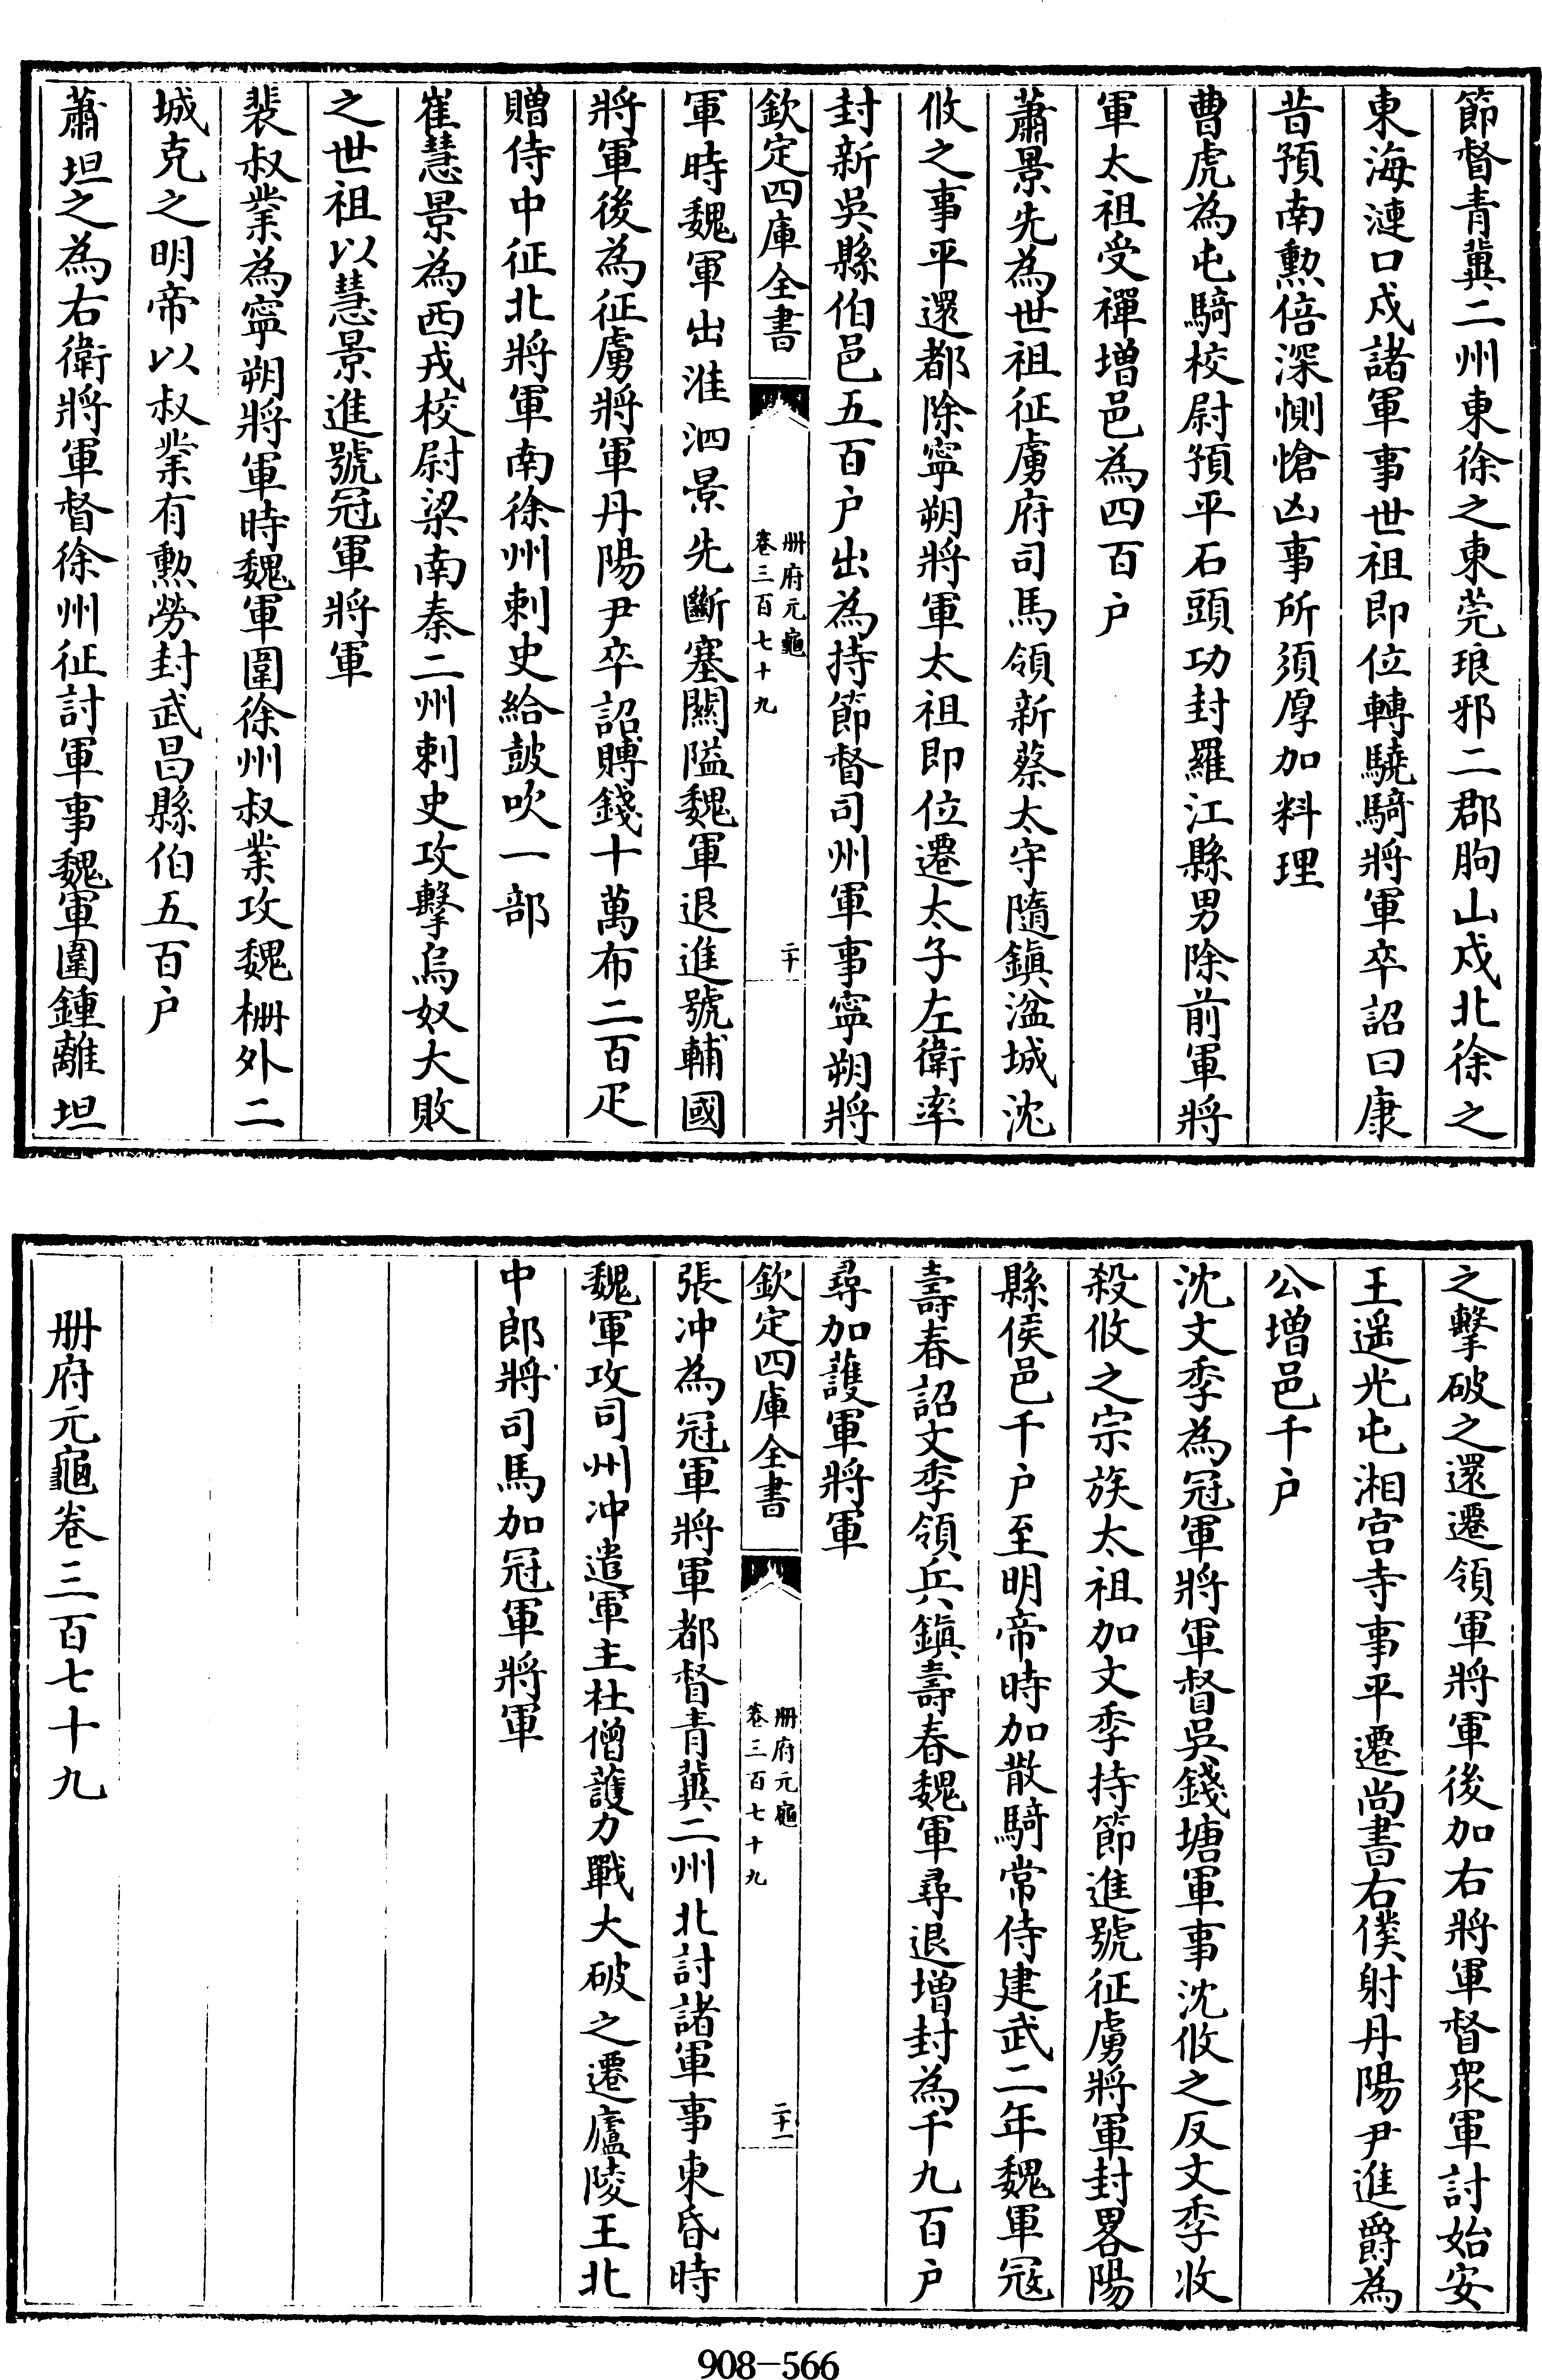 節督青冀二州東徐之東莞琅邪二郡朐山戍北徐之
東海漣口戍諸軍事世祖即位轉驍騎將軍卒詔曰康
昔預南勲倍深惻愴凶事所須厚加料理
曹虎為屯騎校尉預平石頭功封羅江縣男除前軍將
軍太祖受禪增邑為四百户
蕭景先為世祖征虜府司馬領新蔡太守隨鎮湓城沈
攸之事平還都除寧朔將軍太祖即位遷太子左衛率
封新吳縣伯邑五百户出為持節督司州軍事寧朔將
欽定四庫全書
册府元龜
卷三百七十九
二十
軍時魏軍出淮泗景先斷塞關隘魏軍退進號輔國
將軍後為征虜將軍丹陽尹卒詔賻錢十萬布二百疋
贈侍中征北將軍南徐州刺史給鼓吹一部
崔慧景為西戎校尉梁南秦二州刺史攻擊烏奴大敗
之世祖以慧景進號冠軍將軍
裴叔業為寧朔將軍時魏軍圍徐州叔業攻魏柵外二
城克之明帝以叔業有勲勞封武昌縣伯五百户
蕭坦之為右衛將軍督徐州征討軍事魏軍圍鍾離坦
之擊破之還遷領軍將軍後加右將軍督衆軍討始安
王遥光屯湘宮寺事平遷尚書右僕射丹陽尹進爵為
公增邑千户
沈文季為冠軍將軍督吳錢塘軍事沈攸之反文季收
殺攸之宗族太祖加文季持節進號征虜將軍封畧陽
縣侯邑千户至明帝時加散騎常侍建武二年魏軍寇
壽春詔文季領兵鎮壽春魏軍尋退增封為千九百户
尋加護軍將軍
欽定四庫全書
册府元龜
卷三百七十九
二十一
張冲為冠軍將軍都督青冀二州北討諸軍事東昏時
魏軍攻司州冲遣軍主杜僧護力戰大破之遷廬陵王北
中郎將司馬加冠軍將軍
册府元龜卷三百七十九
908-566